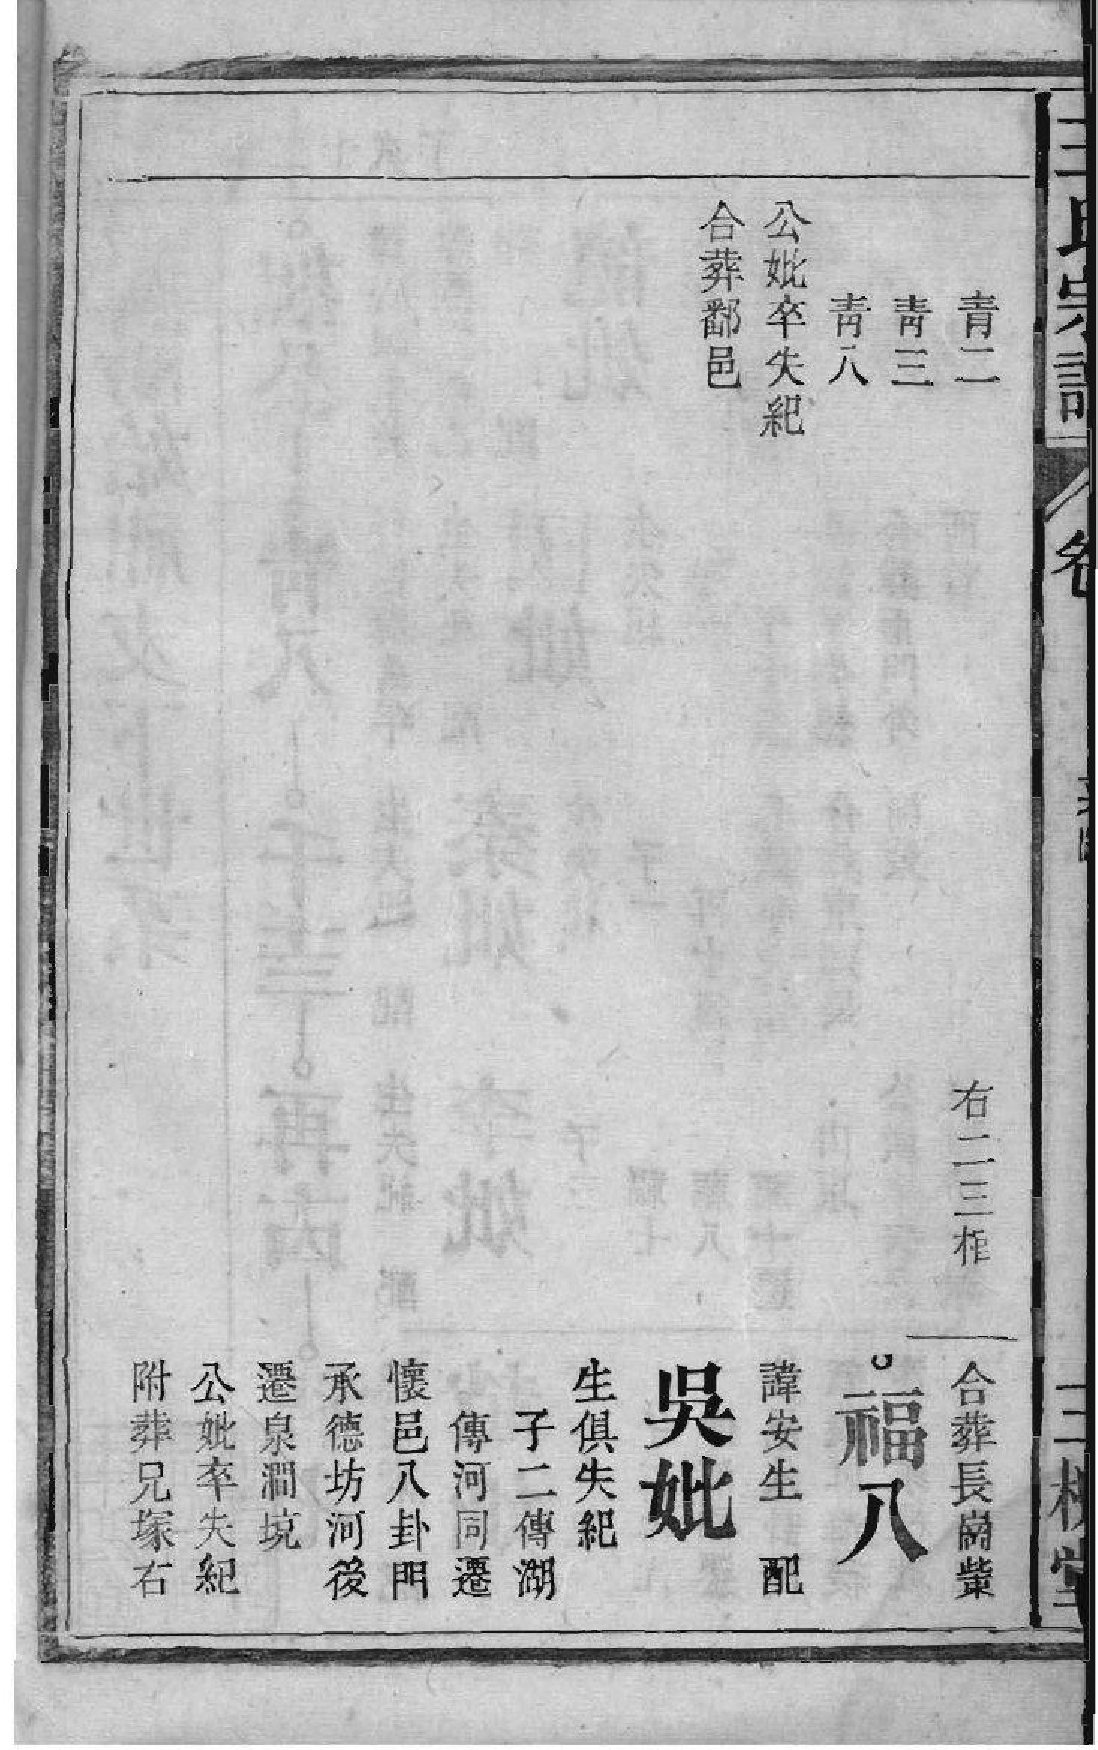 王氏宗譜
卷
三槐堂
青二
青三
青八
公妣卒失紀
合葬鄱邑
右二三柜
合葬長崗柴
福八
諱安生 配
吳妣
生俱失紀
子二傳湖
傳河同遷
懷邑八卦門
承德坊河後
遷泉澗境
公妣卒失紀
附葬兄塚右